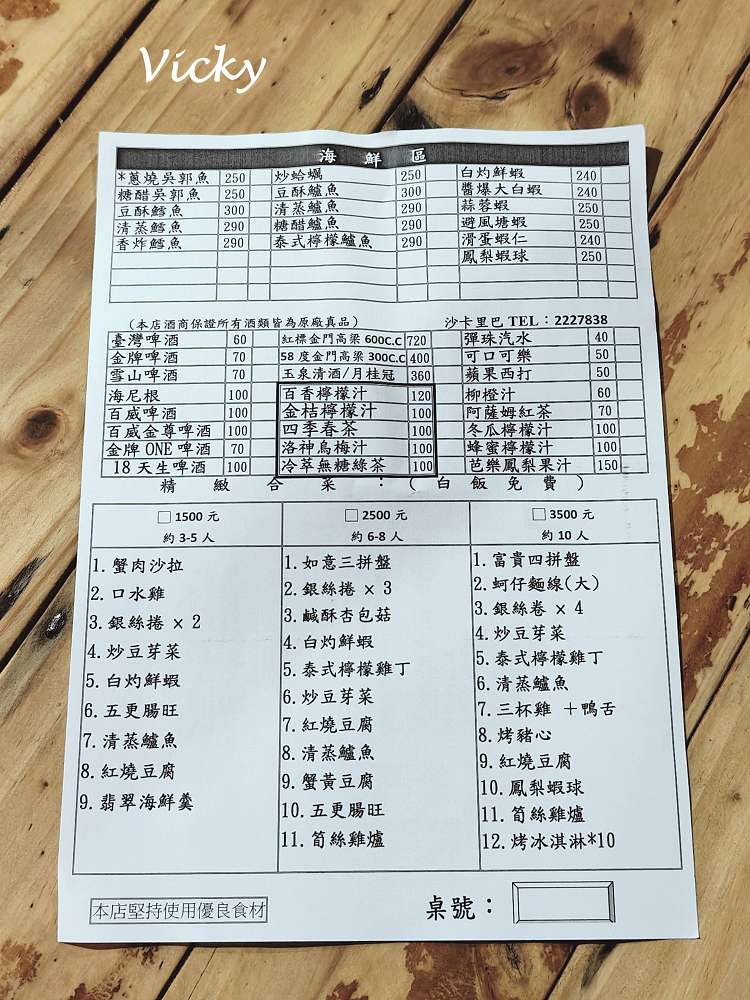 Vicky
海鮮區
*蔥燒吳郭魚 250 炒蛤蠣 250 白灼鮮蝦 240
糖醋吳郭魚 250 豆酥鱸魚 300 醬爆大白蝦 240
豆酥鱈魚 300 清蒸鱸魚 290 蒜蓉蝦 250
清蒸鱈魚 290 糖醋鱸魚 290 避風塘蝦 250
香炸鱈魚 290 泰式檸檬鱸魚 290 滑蛋蝦仁 240
鳳梨蝦球 250
(本店酒商保證所有酒類皆為原廠真品) 沙卡里巴 TEL：2227838
臺灣啤酒 60 紅標金門高梁 600C.C 720 彈珠汽水 40
金牌啤酒 70 58 度金門高梁 300C.C 400 可口可樂 50
雪山啤酒 70 玉泉清酒/月桂冠 360 蘋果西打 50
海尼根 100 百香檸檬汁 120 柳橙汁 60
百威啤酒 100 金桔檸檬汁 100 阿薩姆紅茶 70
百威金尊啤酒 100 四季春茶 100 冬瓜檸檬汁 100
金牌 ONE 啤酒 70 洛神烏梅汁 100 蜂蜜檸檬汁 100
18 天生啤酒 100 冷萃無糖綠茶 100 芭樂鳳梨果汁 150
精緻合菜：(白飯免費)
□ 1500 元
約 3-5 人
1. 蟹肉沙拉
2. 口水雞
3. 銀絲捲 × 2
4. 炒豆芽菜
5. 白灼鮮蝦
6. 五更腸旺
7. 清蒸鱸魚
8. 紅燒豆腐
9. 翡翠海鮮羹
□ 2500 元
約 6-8 人
1. 如意三拼盤
2. 銀絲捲 × 3
3. 鹹酥杏包菇
4. 白灼鮮蝦
5. 泰式檸檬雞丁
6. 炒豆芽菜
7. 紅燒豆腐
8. 清蒸鱸魚
9. 蟹黃豆腐
10. 五更腸旺
11. 筍絲雞爐
□ 3500 元
約 10 人
1. 富貴四拼盤
2. 蚵仔麵線(大)
3. 銀絲卷 × 4
4. 炒豆芽菜
5. 泰式檸檬雞丁
6. 清蒸鱸魚
7. 三杯雞 ＋鴨舌
8. 烤豬心
9. 紅燒豆腐
10. 鳳梨蝦球
11. 筍絲雞爐
12. 烤冰淇淋*10
本店堅持使用優良食材
桌號：